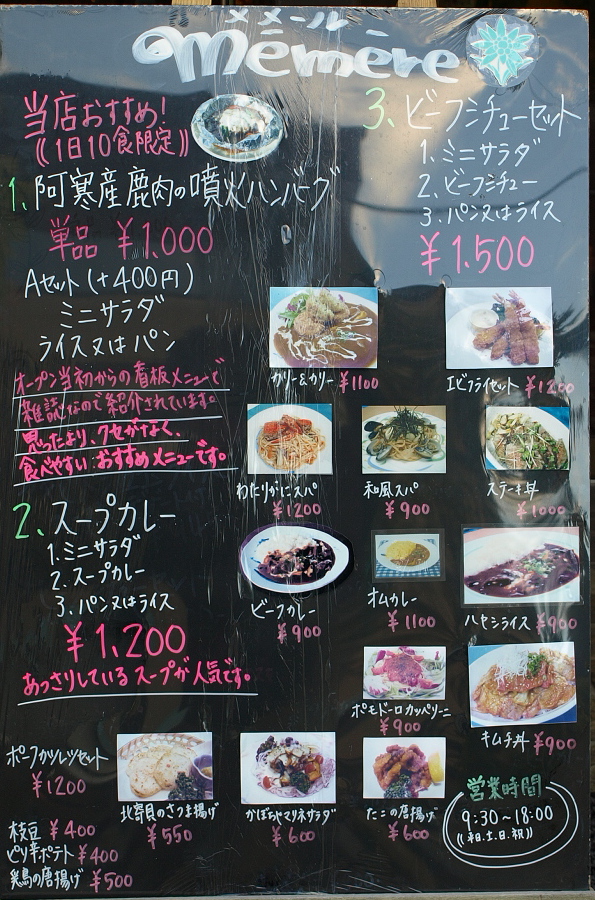 メメール
mēmēre
当店おすすめ！
《1日10食限定》
1、阿寒産鹿肉の噴火ハンバーグ
単品 ¥1.000
Aセット(+400円)
ミニサラダ
ライス又はパン
オープン当初からの看板メニューで
雑誌なので紹介されています。
思ったより、クセがなく、
食べやすいおすすめメニューです。
2、スープカレー
1.ミニサラダ
2.スープカレー
3.パン又はライス
¥1.200
あっさりしているスープが人気です。
3、ビーフシチューセット
1.ミニサラダ
2.ビーフシチュー
3.パン又はライス
¥1.500
カリー&カリー ¥1100
エビフライセット ¥1200
わたりがにスパ
¥1200
和風スパ
¥900
ステーキ丼
¥1000
ビーフカレー
¥900
オムカレー
¥1100
ハヤシライス ¥900
ポモドーロカッペリーニ
¥900
キムチ丼 ¥900
ポークカツレツセット
¥1200
北寄貝のさつま揚げ
¥550
かぼちゃマリネサラダ
¥600
たこの唐揚げ
¥600
枝豆 ¥400
ピリ辛ポテト ¥400
鶏の唐揚げ ¥500
営業時間
9:30~18:00